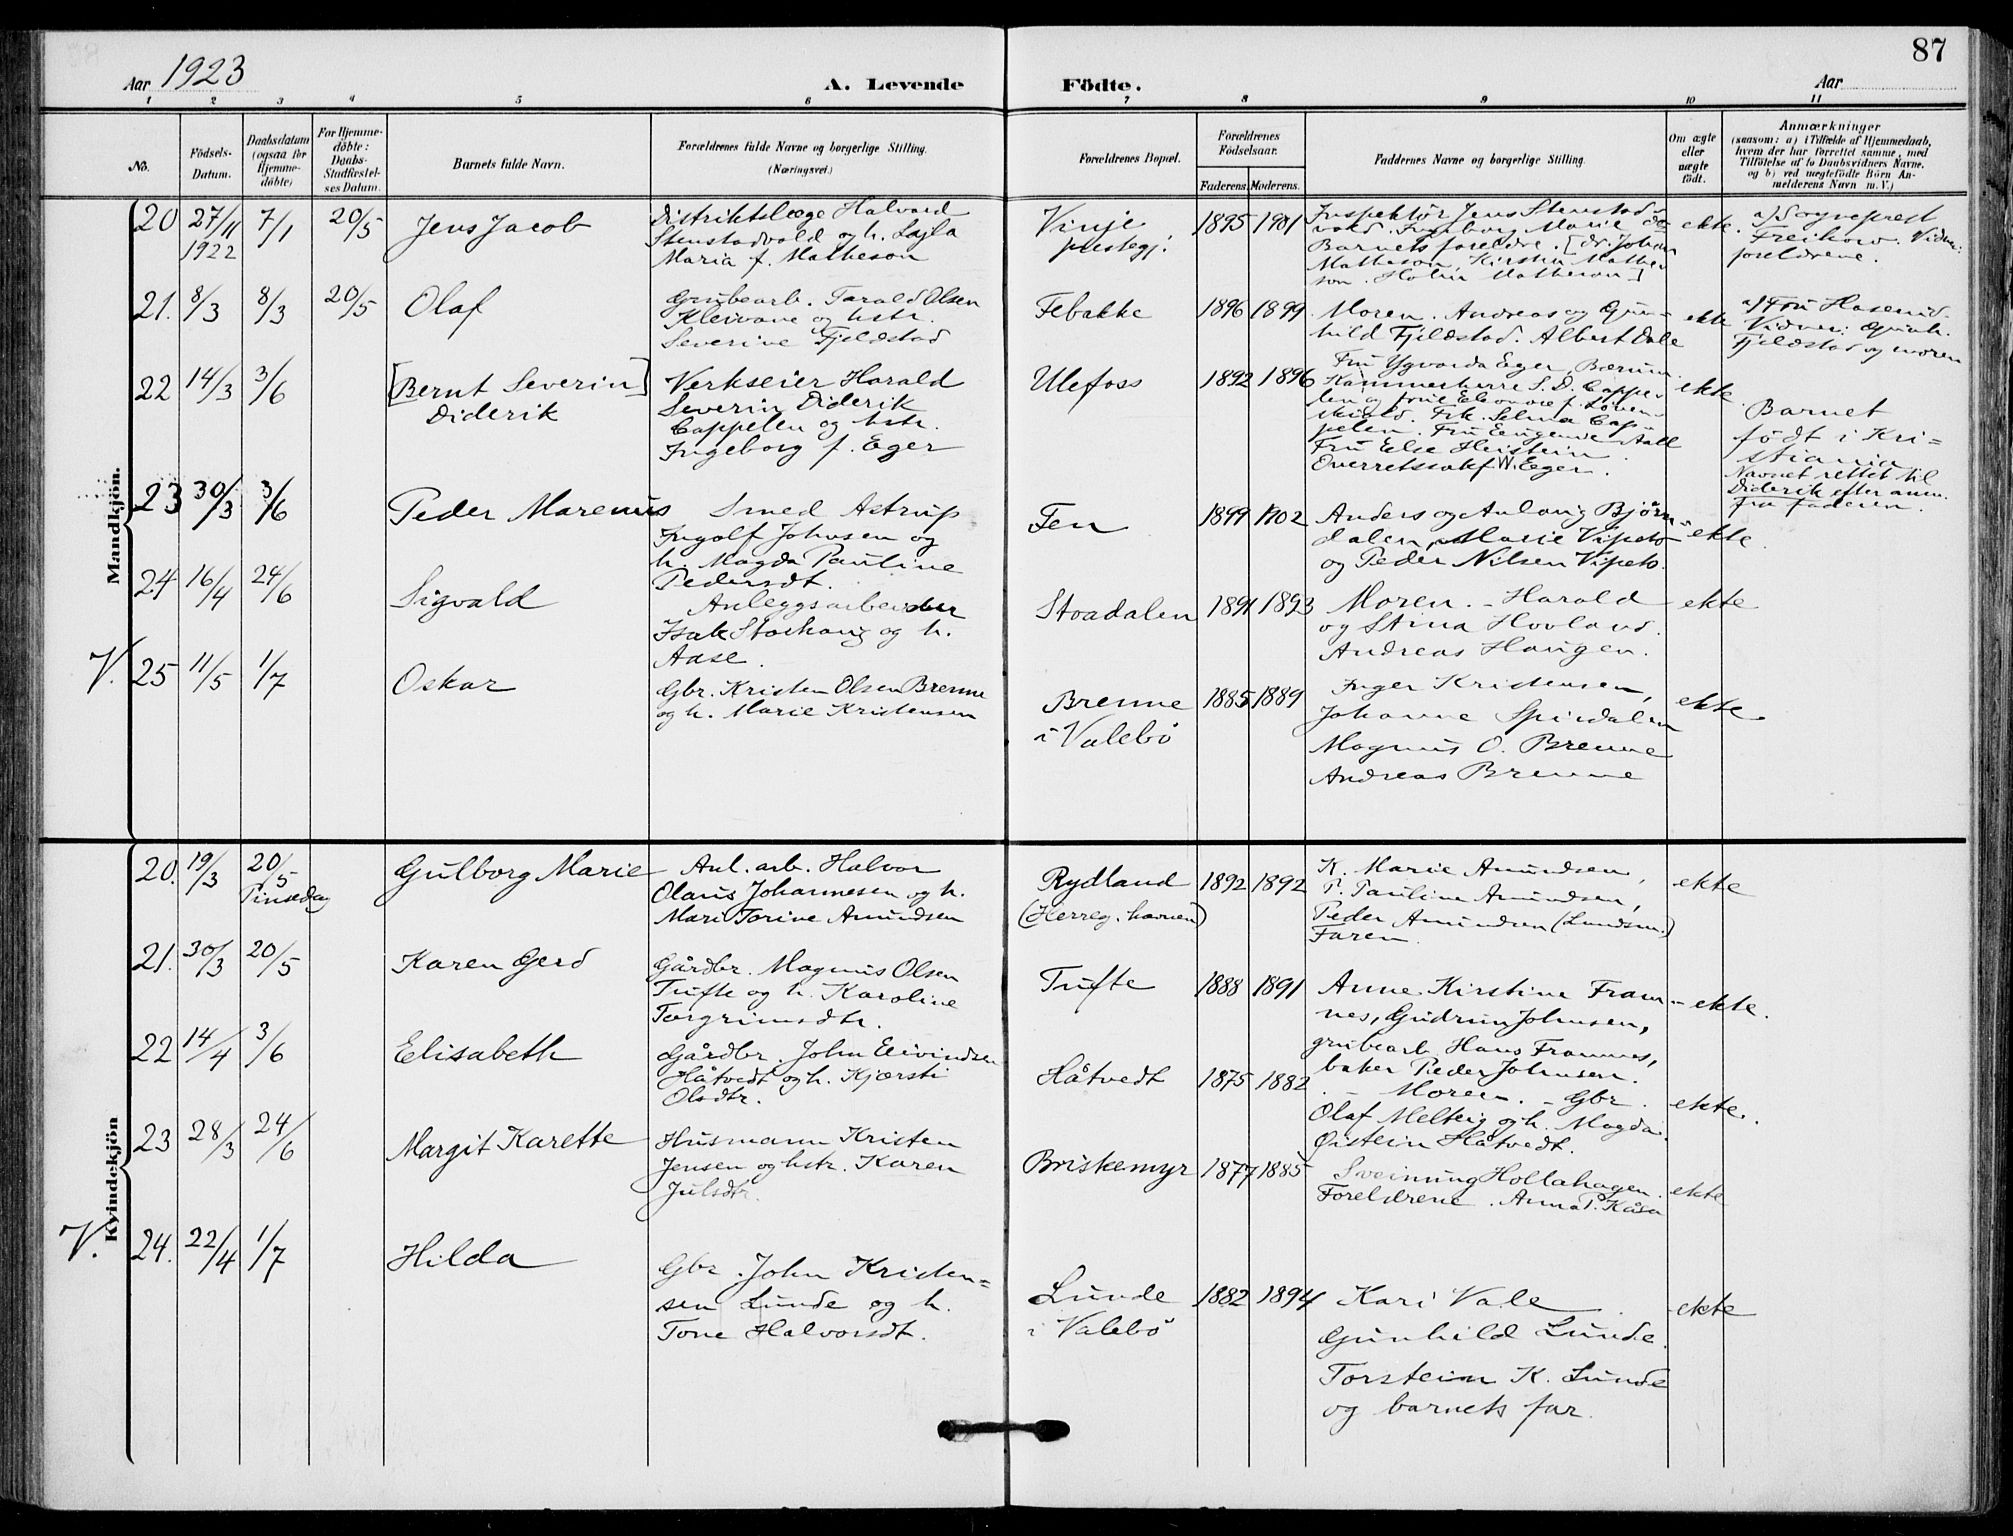 87
Aar 1923
A. Levende
Födte.
Aar
1 2 3 4 5 6 7 8 9 10 11
No.
Födsels-
Datum.
Daabsdatum
(ogsaa for
Hjemme-
döbte)
For Hjemme-
döbte:
Daabs-
Stadfæstel-
ses Datum.
Barnets fulde Navn.
Forældrenes fulde Navne og borgerlige Stilling.
(Næringsvei.)
Forældrenes Bopæl.
Forældrenes
Födselsaar.
Faderens. Moderens.
Faddernes Navne og borgerlige Stilling.
Om ægte
eller
uægte
födt.
Anmærkninger
(saasom: a) i Tilfælde af Hjemmedaab,
hvem der har forrettet samme, med
Tilföielse af to Daabsvidners Navne.
og b) ved uegtefödte Börn An-
melderens Navn m. V.)
Mandkjön.
20 27/11 1922 7/1 20/5 Jens Jacob
Distriktslæge Halvard
Stenstadvold og h. Lajla
Maria f. Matheson
Vinje
prestegj.
1895 1901
Inspektör Jens Stenstad-
vold. Ingeborg Marie do
Barnets foreldre. [dr. Johan
Matheson, Kirsten Mathe-
son. Holm Matheson]
ekte.
a) Sogneprest
Freihow. Vidn:
foreldrene.
21. 8/3 8/3 20/5 Olaf
Grubearb. Tarald Olsen
Kleivane og hstr.
Severine Fjeldstad
Febakke
1896 1899
Moren. Andreas og Gun-
hild Fjeldstad. Albert Dale
ekte
a) Fru Haserud.
Vidner: Gunh.
Fjeldstad og moren
22 14/3 3/6 [Bernt Severin]
Diderik
Verkseier Harald
Severin Diderik
Cappelen og hstr.
Ingeborg f. Eger
Ulefoss
1892 1896
Fru Ygvarda Eger, Bærum.
Kammerherre S. D. Cappe-
len og frue Eleonore f. Löven-
skiold. Frk. Selma Cap-
pelen. Fru Eugenie Aall
Fru Else Heistein
Overretssakf. W. Eger.
ekte.
Barnet
födt i Kri-
stiania
Navnet rettet til
Diderik efter anm.
fra faderen.
23 30/3 3/6 Peder Marenus
Smed Astrup
Ingolf Johnsen og
h. Magda Pauline
Pedersdt.
Fen
1899 1902
Anders og Aulaug Bjørn-
dalen, Marie Vipeto
og Peder Nilsen Vipeto.
ekte.
24 16/4 24/6 Sigvald
Anleggsarbeider
Isak Storhaug og h.
Aase.
Stoadalen
1891 1893
Moren. - Harald
og Stina Hovland.
Andreas Haugen.
ekte
V. 25 11/5 1/7 Oskar
Gbr. Kristen Olsen Brenne
og h. Marie Kristensen
Brenne
i Valebö
1885 1889
Inger Kristensen,
Johanne Spirdalen
Magnus O. Brenne
Andreas Brenne
ekte.
Kvindekjön
20. 19/3 20/5
Pinsedag
Gulborg Marie
Anl. arb. Halvor
Olaus Johannesen og h.
Mari Torine Amundsen
Rydland
(Herreg. havnen)
1892 1892
K. Marie Amundsen,
P. Pauline Amundsen,
Peder Amundsen (Lundsm.)
Faren.
ekte
21. 30/3 20/5 Karen Gerd
Gårdbr. Magnus Olsen
Tufte og h. Karoline
Torgrimsdtr.
Tufte
1888 1891
Anne Kirstine Fram-
nes, Gudrun Johnsen,
grubearb. Hans Framnes,
baker Peder Johnsen.
ekte.
22 14/4 3/6 Elisabeth
Gårdbr. John Eivindsen
Håtvedt og h. Kjærsti
Olsdtr.
Håtvedt
1875 1882
Moren. - Gbr.
Olaf Melteig og h. Magda.
Øistein Håtvedt.
ekte.
23 28/3 24/6 Margit Karette
Husmann Kristen
Jensen og hstr. Karen
Julsdtr.
Briskemyr
1877 1885
Sveinung Hollahagen.
Foreldrene. Anna P. Kåsa
ekte
V. 24. 22/4 1/7 Hilda
Gbr. John Kristen-
sen Lunde og h.
Tone Halvorsdt.
Lunde
i Valebö
1882 1894
Kari Vale
Gunhild Lunde.
Torstein K. Lunde
og barnets far.
ekte